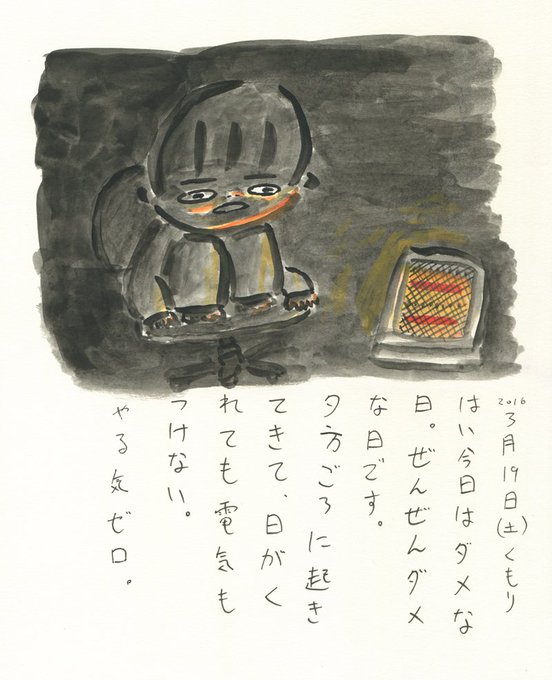 2016
3月19日(土)くもり
はい今日はダメな
日。ぜんぜんダメ
な日です。
夕方ごろに起き
てきて、日がく
れても電気も
つけない。
やる気ゼロ。